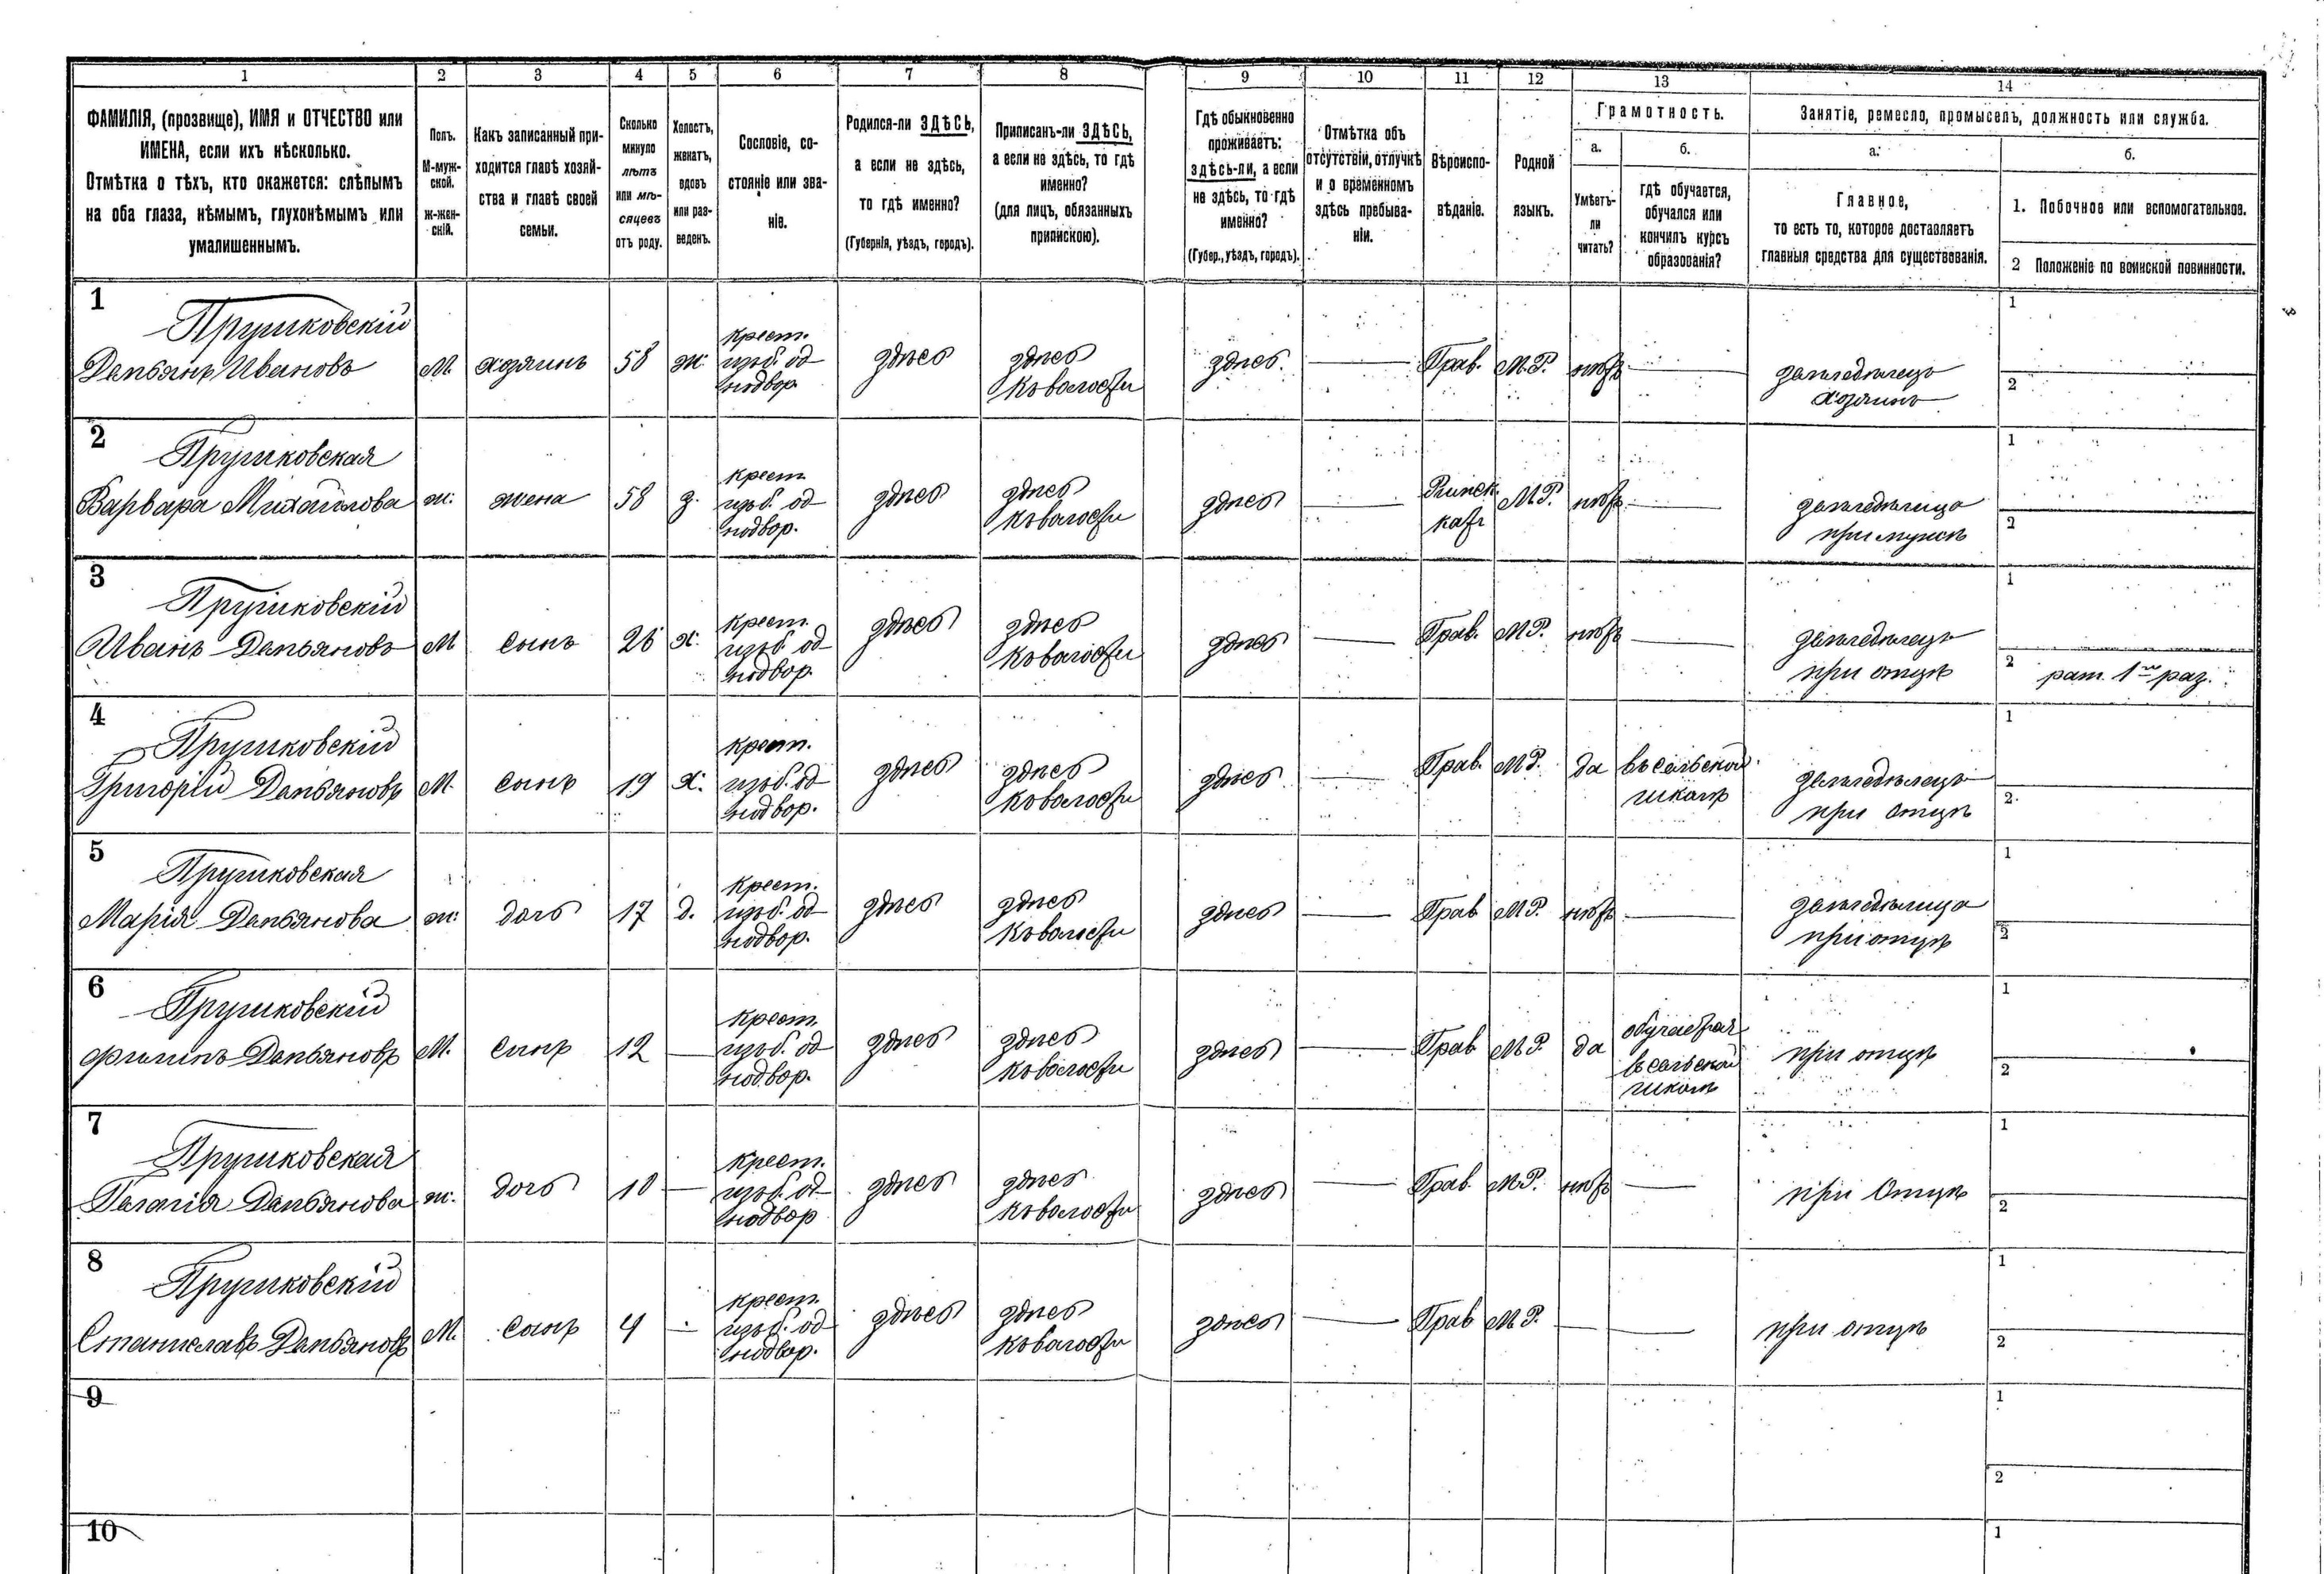 1 2 3 4 5 6 7 8 9 10 11 12 13 14
ФАМИЛІЯ, (прозвище), ИМЯ и ОТЧЕСТВО или
ИМЕНА, если ихъ нѣсколько.
Отмѣтка о тѣхъ, кто окажется: слѣпымъ
на оба глаза, нѣмымъ, глухонѣмымъ или
умалишеннымъ.
Полъ.
М-муж-
ской.
ж-жен-
скій.
Какъ записанный при-
ходится главѣ хозяй-
ства и главѣ своей
семьи.
Сколько
минуло
лѣтъ
или мѣ-
сяцевъ
отъ роду.
Холостъ,
женатъ,
вдовъ
или раз-
веденъ.
Сословіе, со-
стояніе или зва-
ніе.
Родился-ли ЗДѢСЬ,
а если не здѣсь,
то гдѣ именно?
(Губернія, уѣздъ, городъ).
Приписанъ-ли ЗДѢСЬ,
а если не здѣсь, то гдѣ
именно?
(для лицъ, обязанныхъ
припискою).
Гдѣ обыкновенно
проживаетъ:
здѣсь-ли, а если
не здѣсь, то гдѣ
именно?
(Губер., уѣздъ, городъ).
Отмѣтка объ
отсутствіи, отлучкѣ
и о временномъ
здѣсь пребыва-
ніи.
Вѣроиспо-
вѣданіе.
Родной
языкъ.
Грамотность.
а.
Умѣетъ-
ли
читать?
б.
гдѣ обучается,
обучался или
кончилъ курсъ
образованія?
Занятіе, ремесло, промыселъ, должность или служба.
а.
Главное,
то есть то, которое доставляетъ
главныя средства для существованія.
б.
1. Побочное или вспомогательное.
2 Положеніе по воинской повинности.
1
Прушковскій
Демьянъ Ивановъ
М.
хозяинъ
58
ж.
крест.
подвор.
здѣсь
здѣсь
здѣсь.
Прав.
М.Р.
нѣтъ
земледѣлецъ
хозяинъ
1
2
2
Прушковская
Варвара Михайлова
ж.
жена
58
з.
крест.
подвор.
здѣсь
здѣсь
здѣсь
Римск.
кат.
М.Р.
нѣтъ
земледѣлица
при мужѣ
1
2
3
Прушковскій
Иванъ Демьяновъ
М
сынъ
26
х.
крест.
подвор.
здѣсь
здѣсь
здѣсь
Прав.
М.Р.
нѣтъ
земледѣлецъ
при отцѣ
1
2 рат. 1го раз.
4
Прушковскій
Григорій Демьяновъ
М.
сынъ
19
х.
крест.
подвор.
здѣсь
здѣсь
здѣсь
Прав.
М.Р.
да
въ сельской
школѣ
земледѣлецъ
при отцѣ
1
2.
5
Прушковская
Марія Демьянова
ж.
дочь
17
д.
крест.
подвор.
здѣсь
здѣсь
здѣсь
Прав
М.Р.
нѣтъ
земледѣлица
при отцѣ
1
2
6
Прушковскій
Филипъ Демьяновъ
М.
сынъ
12
крест.
подвор.
здѣсь
здѣсь
здѣсь
Прав
М.Р.
да
обучается
въ сельской
школѣ
при отцѣ
1
2
7
Прушковская
Пелагія Демьянова
ж.
дочь
10
крест.
подвор
здѣсь
здѣсь
здѣсь
Прав.
М.Р.
нѣтъ
при Отцѣ
1
2
8
Прушковскій
Станиславъ Демьяновъ
М.
сынъ
4
крест.
подвор.
здѣсь
здѣсь
здѣсь
Прав
М.Р.
при отцѣ
1
2
9
1
2
10
1